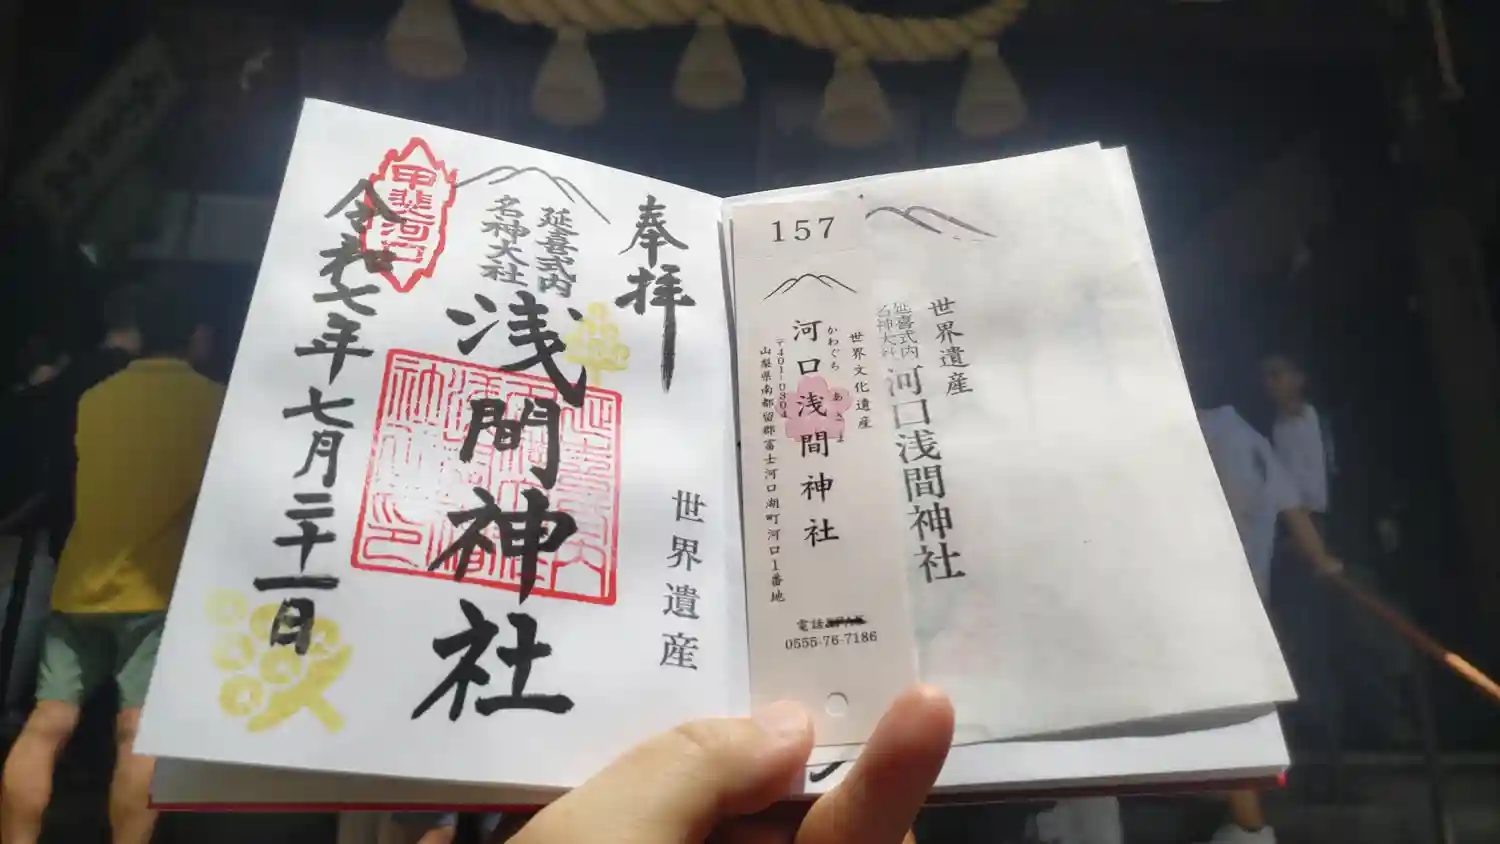 奉拝
延喜式内
名神大社
浅間神社
世界遺産
甲斐河口
令和七年七月二十一日
157
世界文化遺産
かわぐち あさま
河口浅間神社
〒401-0304
山梨県南都留郡富士河口湖町河口1番地
電話
0555-76-7186
世界遺産
延喜式内
名神大社
河口浅間神社